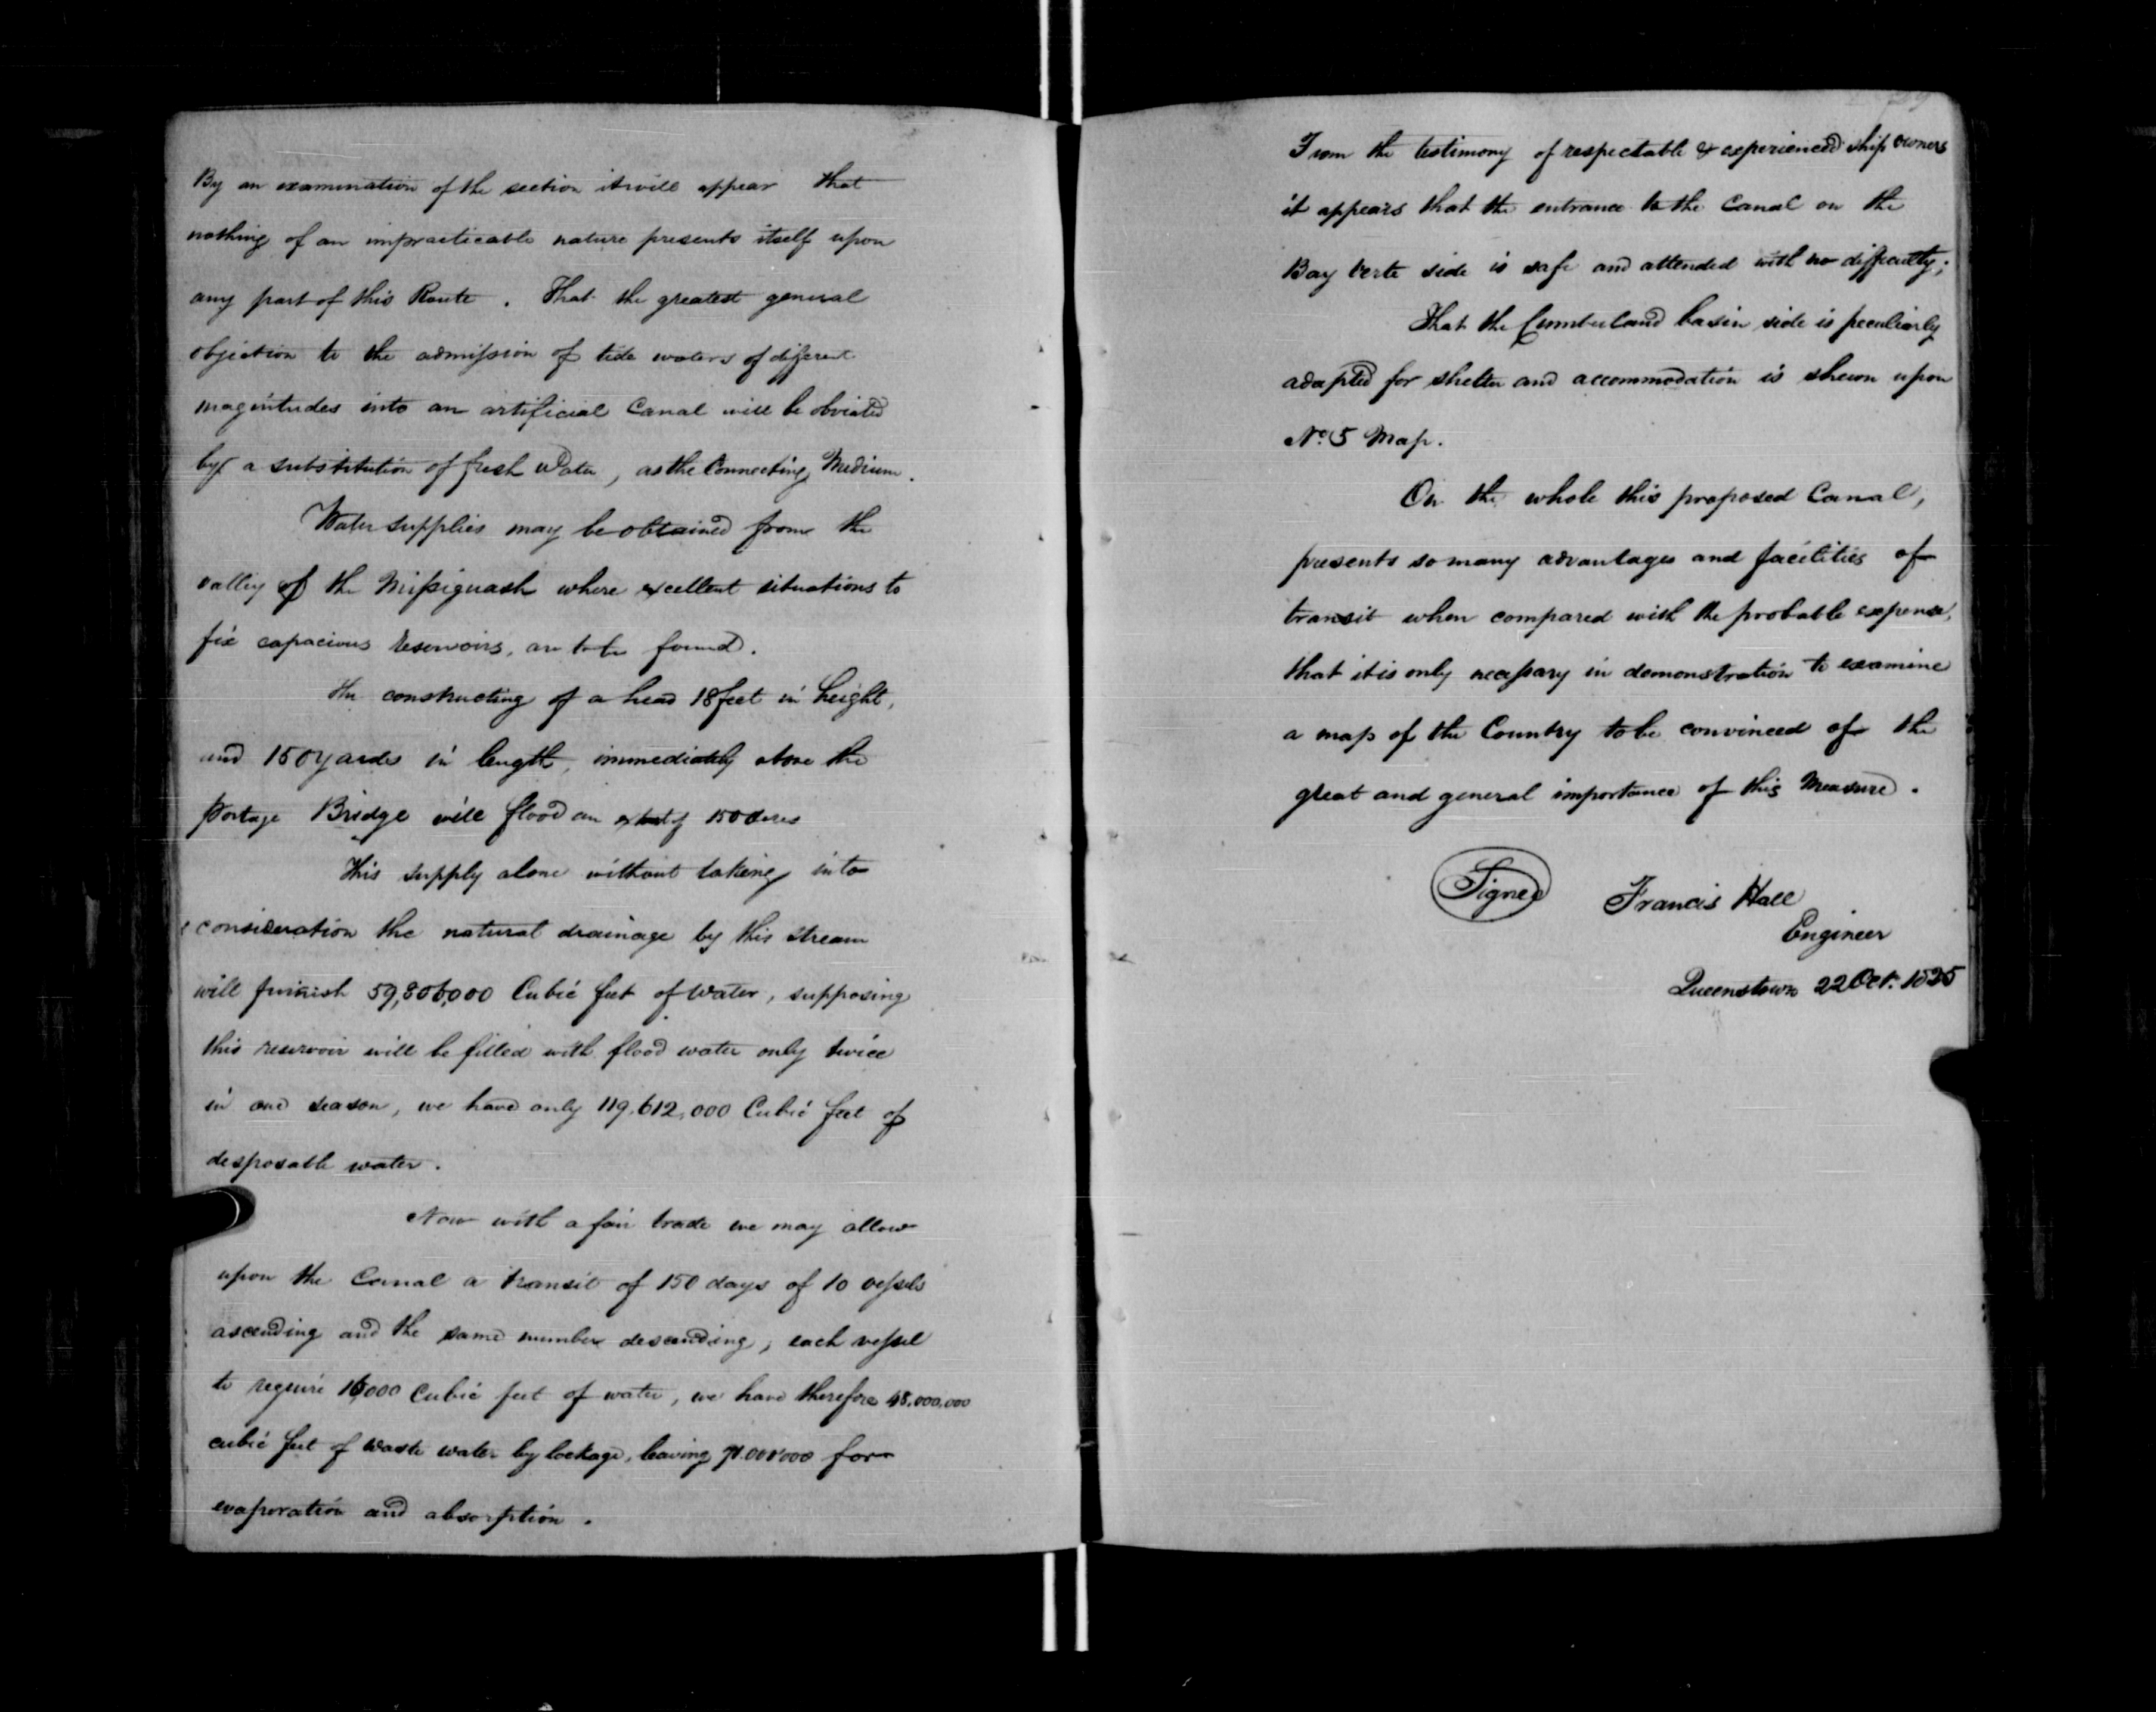 By an examination of the section it will appear that
nothing of an impracticable nature presents itself upon
any part of this Route . That the greatest general
objection to the admission of tide waters of different
magnitudes into an artificial Canal will be obviated
by a substitution of fresh Water, as the Connecting Medium.
Water supplies may be obtained from the
valley of the Missiguash where excellent situations to
fix capacious reservoirs, are to be found.
The constructing of a head 18 feet in height,
and 150 yards in length, immediately above the
portage Bridge will flood an extent of 150 Acres
This supply alone without taking into
consideration the natural drainage by this stream
will furnish 59,806,000 Cubic feet of Water, supposing
this reservoir will be filled with flood water only twice
in one season, we have only 119,612,000 Cubic feet of
desposable water.
Now with a fair trade we may allow
upon the Canal a transit of 150 days of 10 vessels
ascending and the same number descending, each vessel
to require 16,000 Cubic feet of water, we have therefore 48,000,000
cubic feet of waste water by lockage, leaving 71.000.000 for
evaporation and absorption.
From the testimony of respectable & experienced ship owners
it appears that the entrance to the Canal on the
Bay Verte side is safe and attended with no difficulty;
That the Cumberland basin side is peculiarly
adapted for shelter and accommodation is shewn upon
No. 5 Map.
On the whole this proposed Canal,
presents so many advantages and facilities of
transit when compared with the probable expense,
that it is only necessary in demonstration to examine
a map of the Country to be convinced of the
great and general importance of this Measure.
Signed Francis Hall
Engineer
Queenstown 22 Oct. 1825